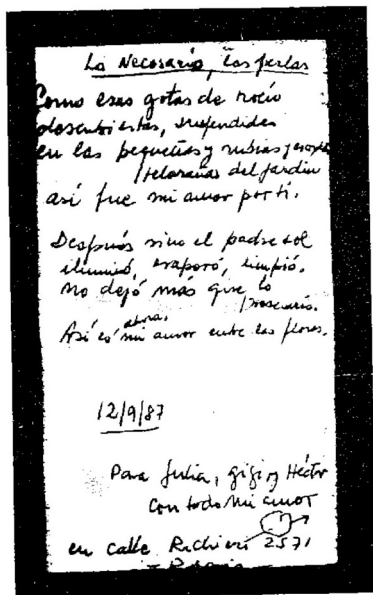 Lo Necesario, las perlas
Como esas gotas de rocío
descubiertas, suspendidas
en las pequeñas y rubias y
telarañas del jardín
así fue mi amor por ti.
Después vino el padre sol
iluminó, evaporó, limpió.
no dejó más que lo
necesario.
ahora.
Así es mi amor entre las flores.
12/9/87
Para Julia, Gigi y Héctor
con todo mi amor
en calle Richieri 2571